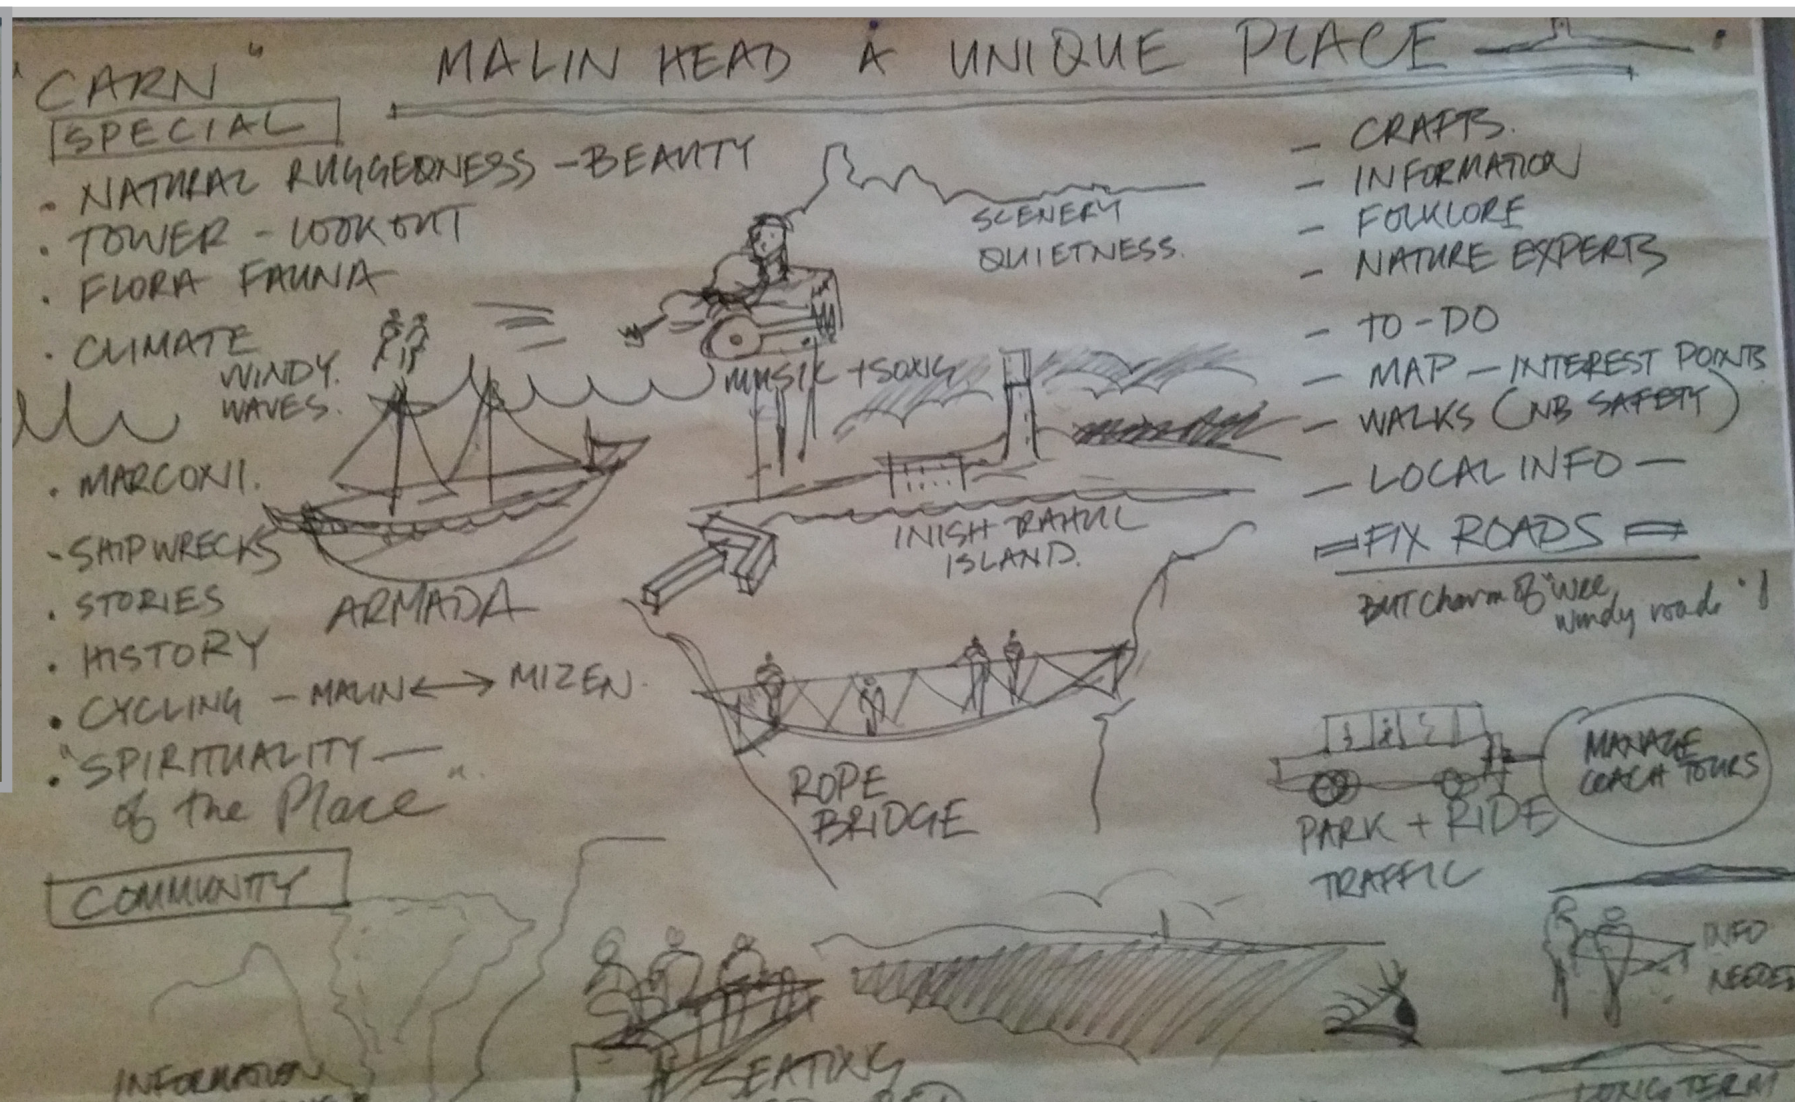 MALIN HEAD A UNIQUE PLACE
"CARN"
SPECIAL
• NATURAL RUGGEDNESS - BEAUTY
• TOWER - LOOKOUT
• FLORA FAUNA
• CLIMATE
WINDY.
WAVES.
• MARCONI.
- SHIPWRECKS
• STORIES
• HISTORY
• CYCLING - MALIN ↔ MIZEN.
• "SPIRITUALITY —
of the Place"
ARMADA
SCENERY
QUIETNESS.
MUSIC + SONG
INISHTRAHUL
ISLAND.
ROPE
BRIDGE
- CRAFTS.
- INFORMATION
- FOLKLORE
- NATURE EXPERTS
- TO-DO
- MAP - INTEREST POINTS
- WALKS (NB SAFETY)
- LOCAL INFO -
= FIX ROADS =
BUT Charm of "wee
windy roads"!
MANAGE
COACH TOURS
PARK + RIDE
TRAFFIC
COMMUNITY
INFORMATION
SEATING
INFO
NEEDED
LONG TERM